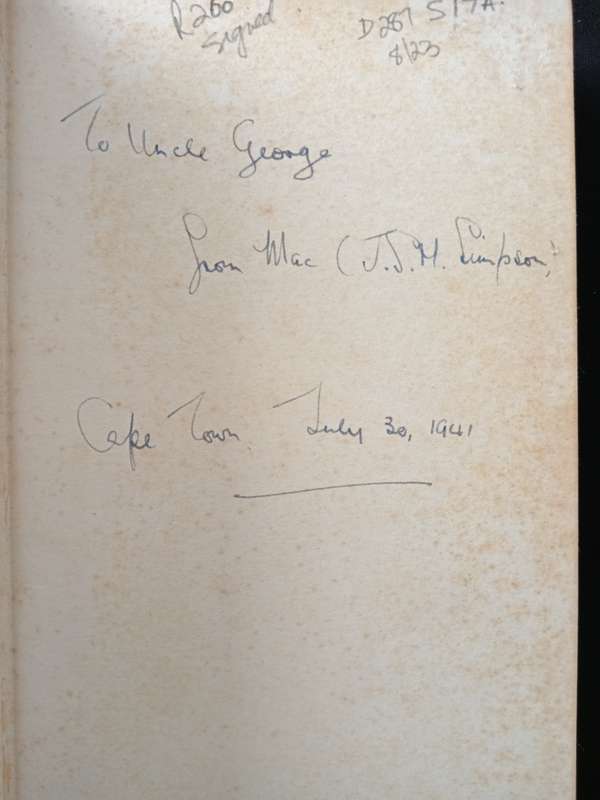 R260
Signed
D287 SITA.
8/23
To Uncle George
from Mac (J.S.M. Simpson)
Cape Town. July 30, 1941